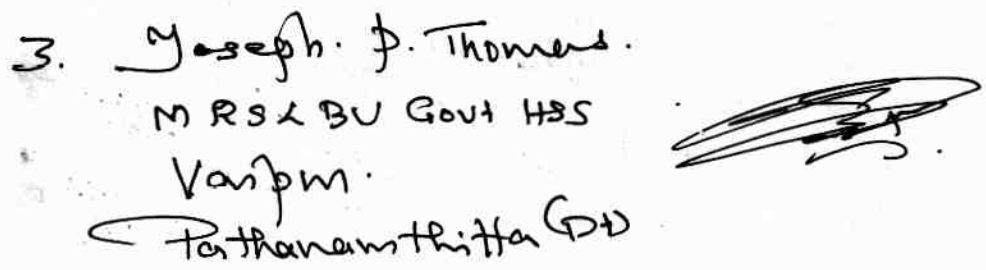 3. Joseph. P. Thomas.
M R S L BV Govt HSS
Vaipur.
Pathanamthitta (Dt)